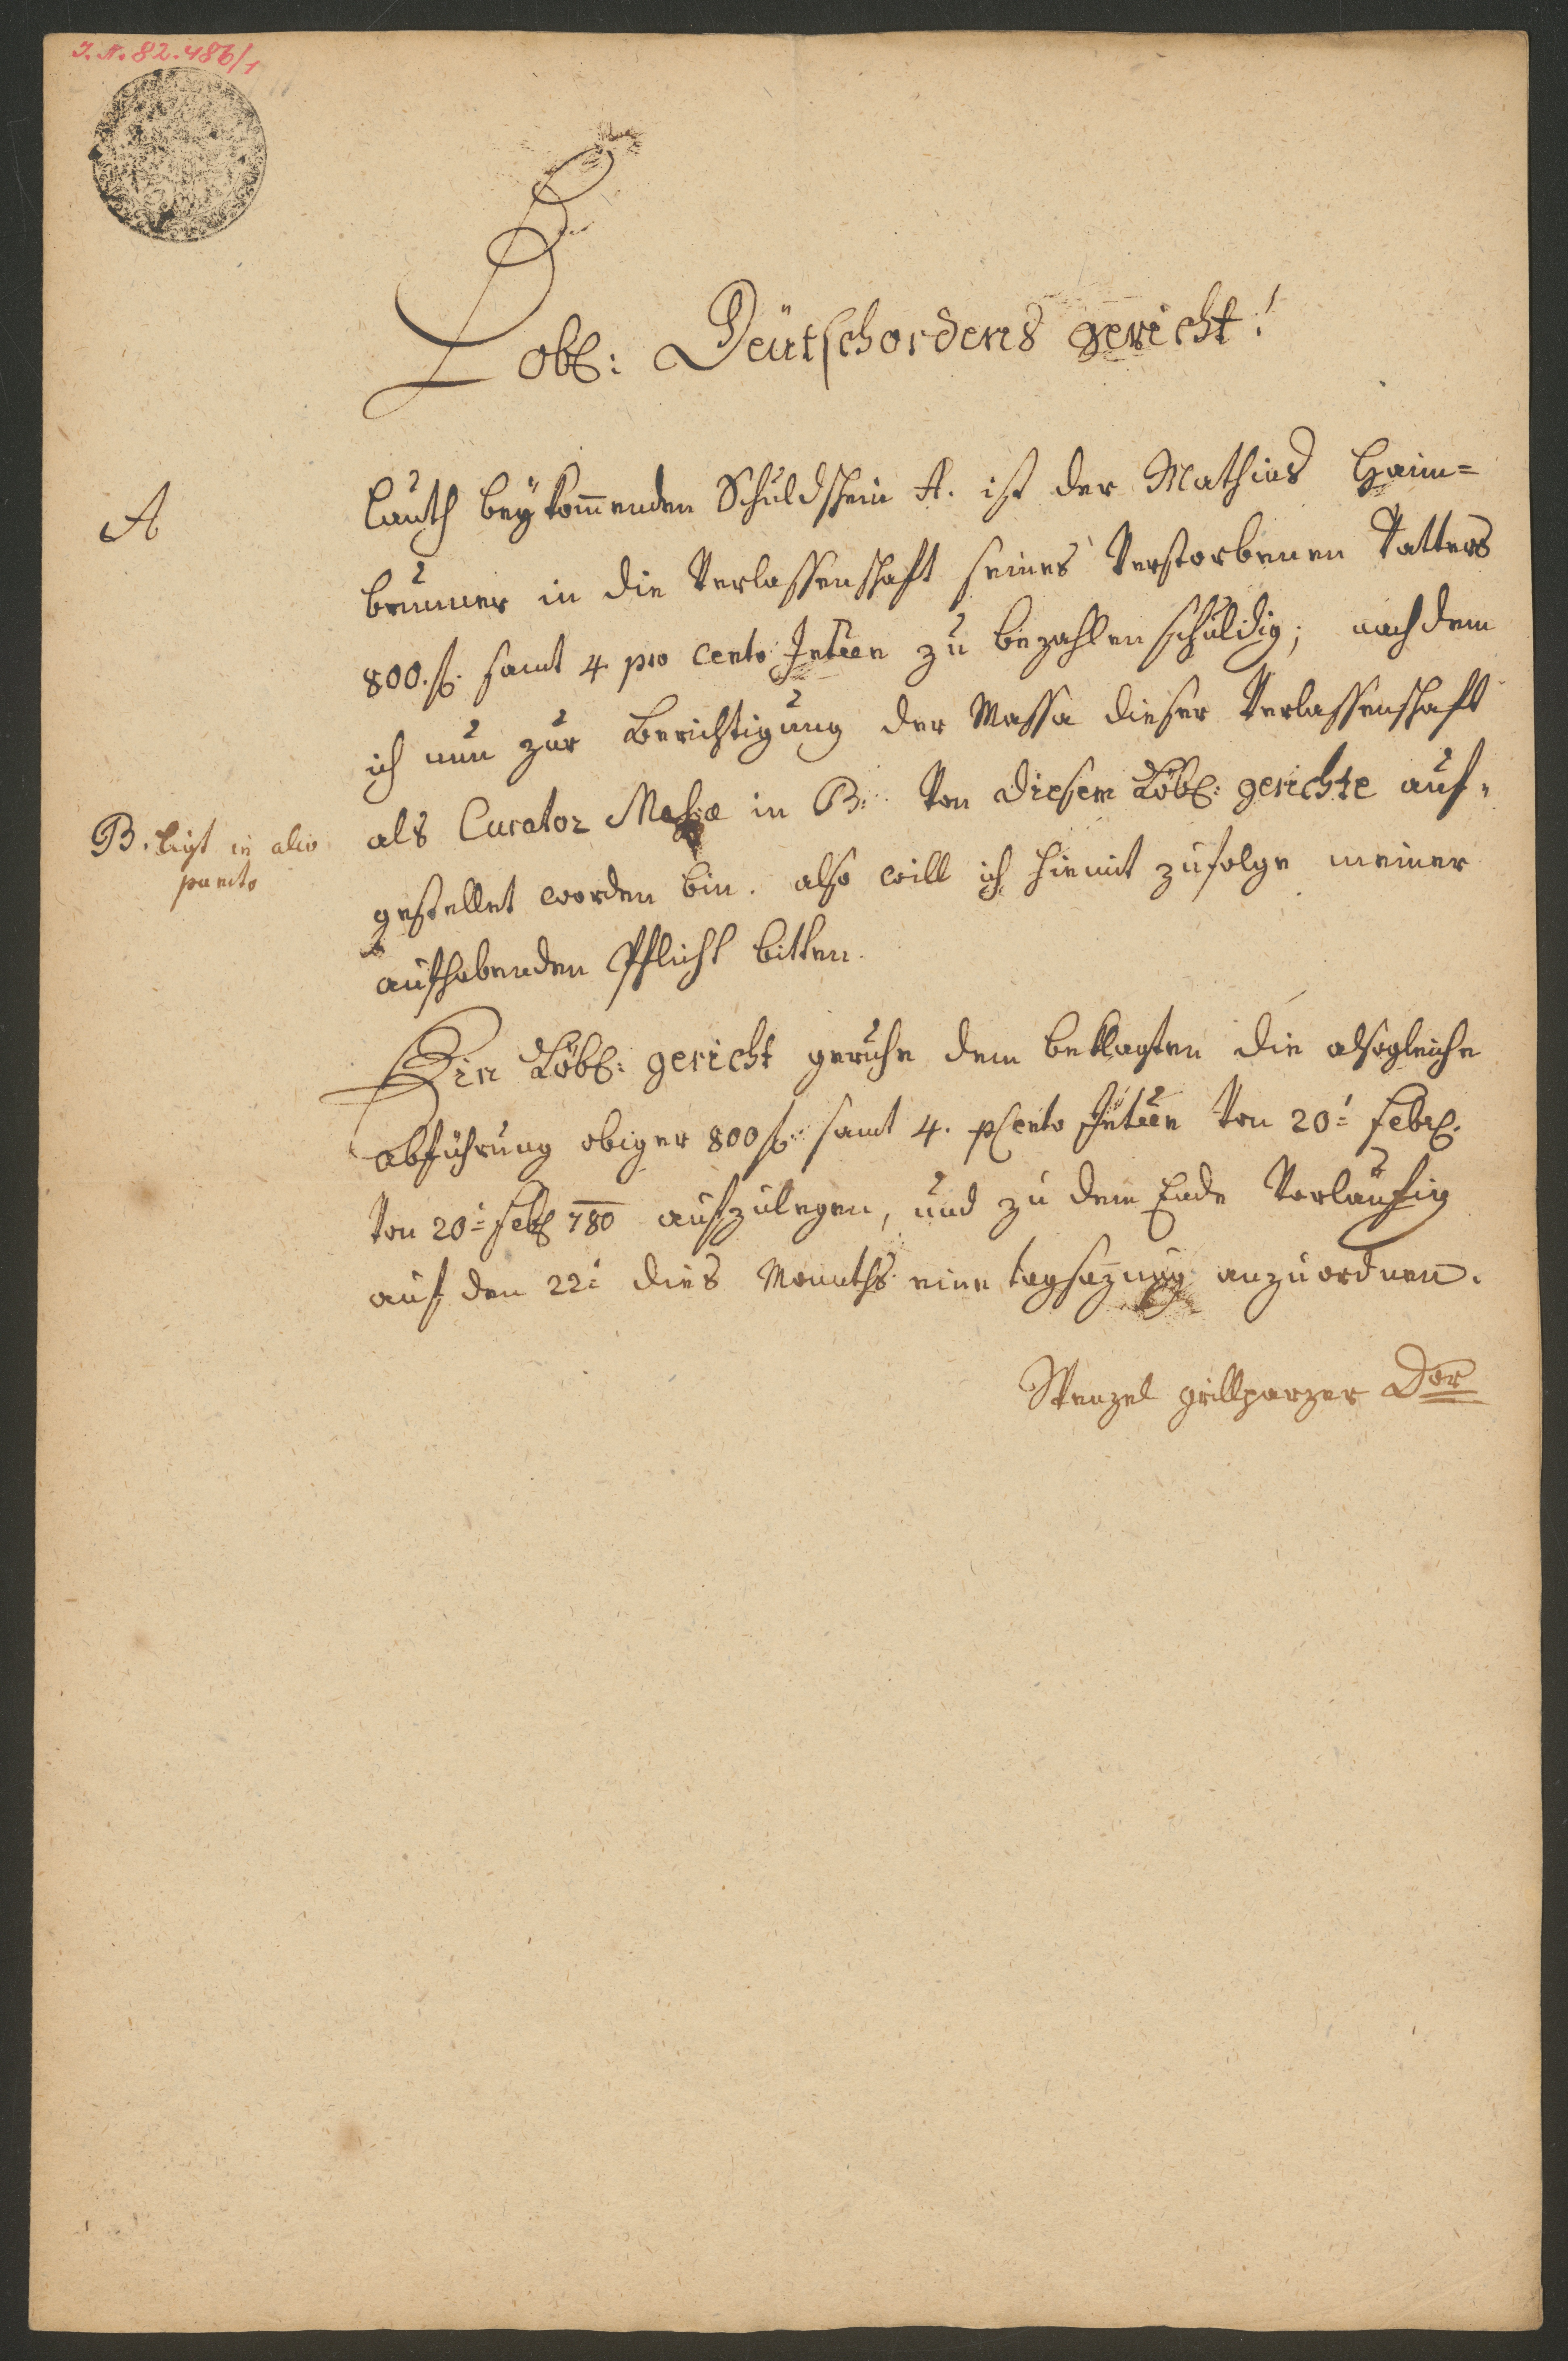 J. N. 82.486/1
Löbl: Deütschordens gericht!
A
Lauth beÿkom̄enden Schuldschein A. ist der Mathias Haim=
brunner in die Verlassenschaft seines Verstorbenen Vatters
800.f. samt 4 pro cento Inteen zu bezahlen schuldig; nachdem
ich nun zur Berichtigung der Massa dieser Verlassenschaft
als Curator Massæ in B: Von diesem Löbl: gerichte auf=
B. ligt in alio
puncto
gestellet worden bin. also will ich hiemit zufolge meiner
aufhabenden Pflicht bitten.
Ein Löbl: gericht geruhe dem beklagten die alsogleiche
abführung obiger 800 f: samt 4. pCento Inteen Von 20: Febr.
Von 20: Feb 780 aufzulegen, und zu dem Ende Vorläufig
auf den 22: dies Monaths eine tagsazung anzuordnen.
Wenzel grillparzer Dor